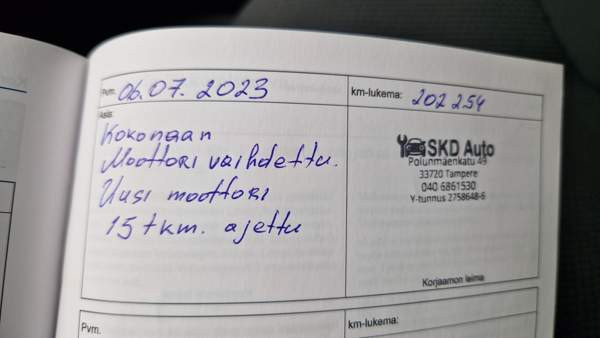 Pvm. 06.07. 2023
km-lukema: 202 254
Asia:
Kokonaan
Moottori vaihdettu.
Uusi moottori
15 tkm. ajettu
SKD Auto
Polunmäenkatu 49
33720 Tampere
040 6861530
Y-tunnus 2758648-6
Korjaamon leima
Pvm.
km-lukema: